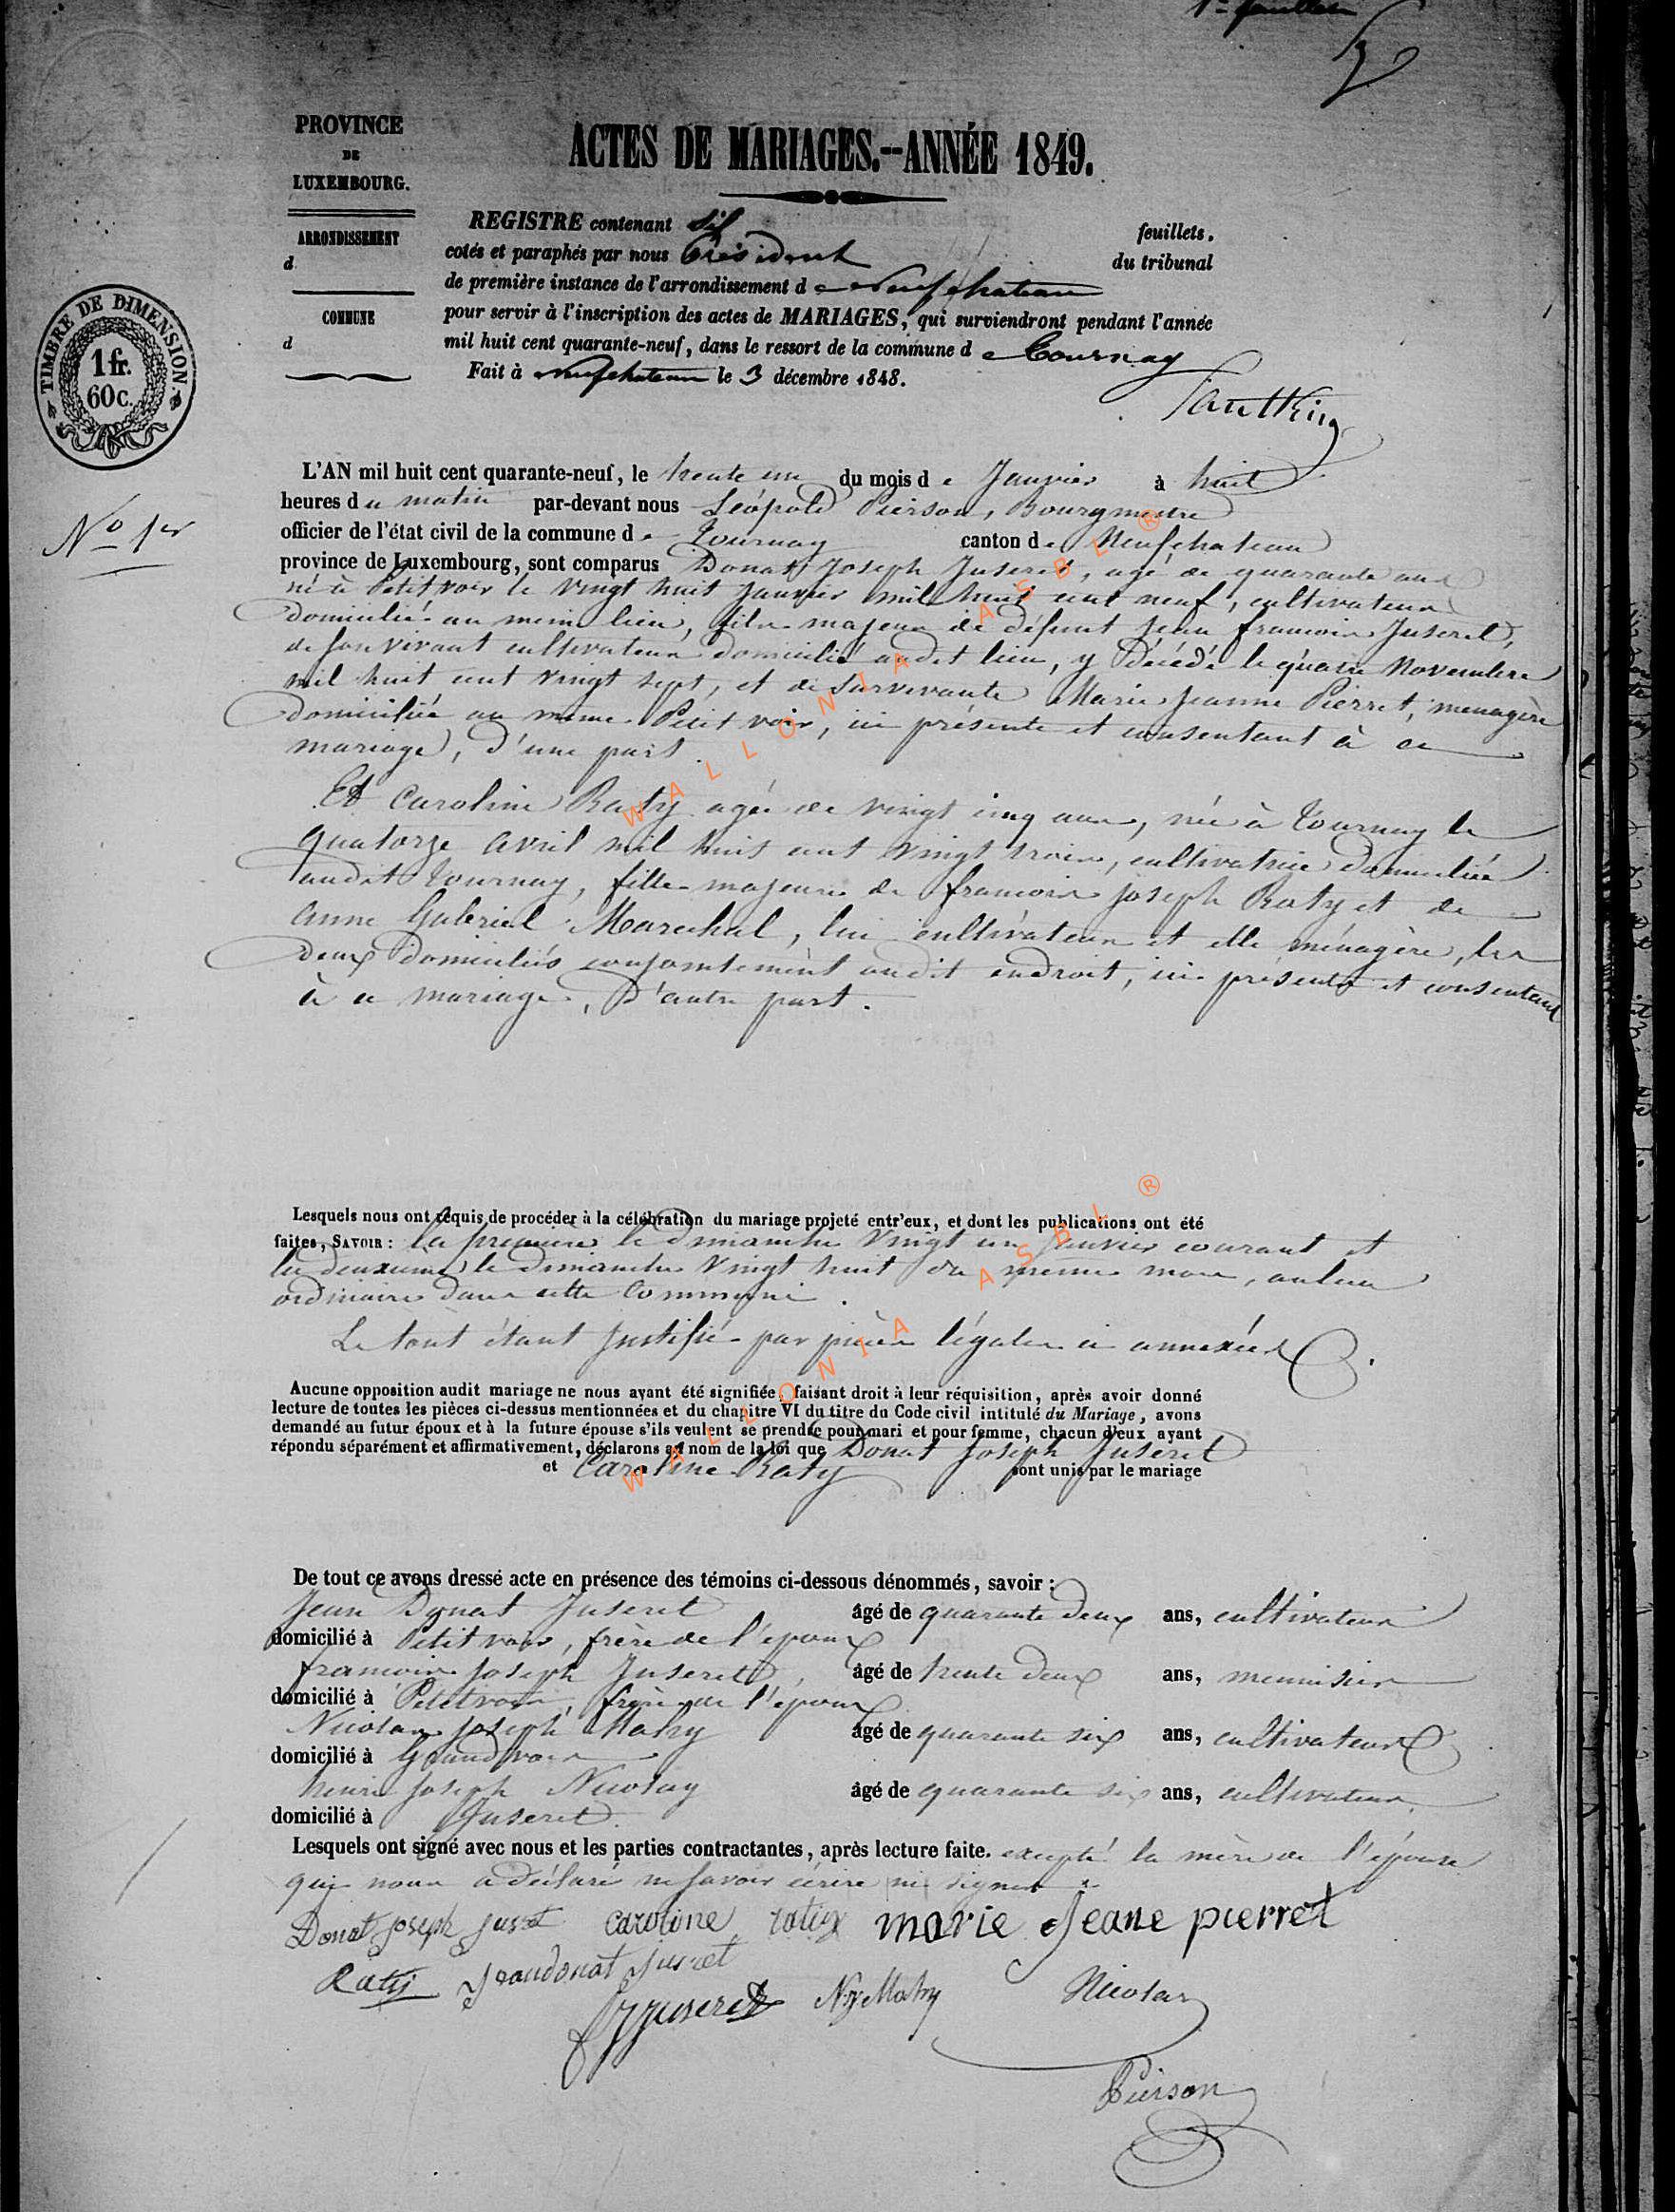 1er feuillet
PROVINCE
DE
LUXEMBOURG.
ARRONDISSEMENT
d
COMMUNE
d
TIMBRE DE DIMENSION.
1 fr.
60 c.
ACTES DE MARIAGES.--ANNÉE 1849.
REGISTRE contenant six feuillets.
cotés et paraphés par nous Président du tribunal
de première instance de l'arrondissement de Neufchateau
pour servir à l'inscription des actes de MARIAGES, qui surviendront pendant l'année
mil huit cent quarante-neuf, dans le ressort de la commune de Tournay
Fait à Neufchateau le 3 décembre 1848.
No 1er
L'AN mil huit cent quarante-neuf, le trente un du mois de Janvier à huit
heures du matin par-devant nous Léopold Pierson, Bourgmestre
officier de l'état civil de la commune de Tournay canton de Neufchateau
province de Luxembourg, sont comparus Donat Joseph Juseret, agé de quarante ans
né à Petitvoir le vingt huit Janvier mil huit cent neuf, cultivateur
domicilié au même lieu, fils majeur de défunt Jean françois Juseret,
de son vivant cultivateur domicilié audit lieu, y décédé le quatre Novembre
mil huit cent vingt sept, et de survivante Marie Jeanne Pierret, menagère
domiciliée au même Petit voir, ici présente et consentant à ce
mariage, d'une part.
Et Caroline Raty agée de vingt cinq ans, née à Tournay le
quatorze avril mil huit cent vingt trois, cultivatrice domiciliée
audit Tournay, fille majeure de françois joseph Raty et de
Anne Gabriel Marechal, lui cultivateur et elle ménagère, les
deux domiciliés conjointement audit endroit, ici présents et consentant
à ce mariage, d'autre part.
Lesquels nous ont requis de procéder à la célébration du mariage projeté entr'eux, et dont les publications ont été
faites, SAVOIR : la première le dimanche vingt un Janvier courant et
la deuxieme le dimanche vingt huit du même mois, au lieu
ordinaire dans cette Commune.
Le tout étant justifié par pièces légales ci annexées.
Aucune opposition audit mariage ne nous ayant été signifiée, faisant droit à leur réquisition, après avoir donné
lecture de toutes les pièces ci-dessus mentionnées et du chapitre VI du titre du Code civil intitulé du Mariage, avons
demandé au futur époux et à la future épouse s'ils veulent se prendre pour mari et pour femme, chacun d'eux ayant
répondu séparément et affirmativement, déclarons au nom de la loi que Donat Joseph Juseret
et Caroline Raty sont unis par le mariage
De tout ce avons dressé acte en présence des témoins ci-dessous dénommés, savoir :
Jean Donat Juseret âgé de quarante deux ans, cultivateur
domicilié à Petitvoir, frère de l'epoux
françois Joseph Juseret, âgé de trente deux ans, menuisier
domicilié à Petitvoir, frère de l'époux
Nicolas Joseph Mahy âgé de quarante six ans, cultivateur
domicilié à Grandvoir
henri Joseph Nicolay âgé de quarante six ans, cultivateur
domicilié à Juseret.
Lesquels ont signé avec nous et les parties contractantes, après lecture faite. excepté la mère de l'épouse
qui nous a déclaré ne savoir écrire ni signer.
Donat joseph jusret caroline ratiy marie Jeane pierret
Raty Jeandonat Jusret
FJJuseret NJMahy Nicolay
Pierson
WALLONIA ASBL ®
WALLONIA ASBL ®